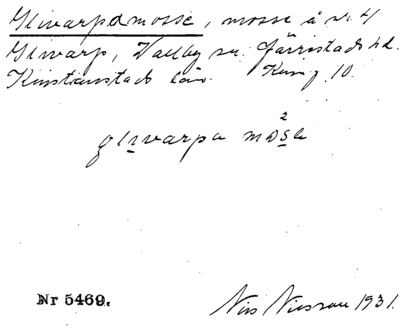 Glivarpamosse, mosse å nr 4
Glivarp, Vallby sn. Järrestads hd.
Kristianstads län. Kungj. 10.
2
glivarpa mosa
Nr 5469.
Nils Nilsson 1931.